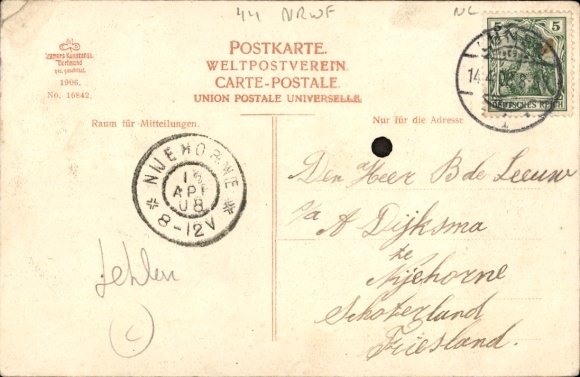 44 NRWF
NL
POSTKARTE.
WELTPOSTVEREIN.
CARTE-POSTALE.
UNION POSTALE UNIVERSELLE.
Dortmund
1906.
No. 16842.
5 5
DEUTSCHES REICH
14.4.08.8
Raum für Mitteilungen.
Nur für die Adresse
NIJEHORNE
APR
08
8-12V
Den Heer B de Leeuw
p/a A Dijksma
te
Nijehorne
Schoterland
Friesland.
fehlen
C